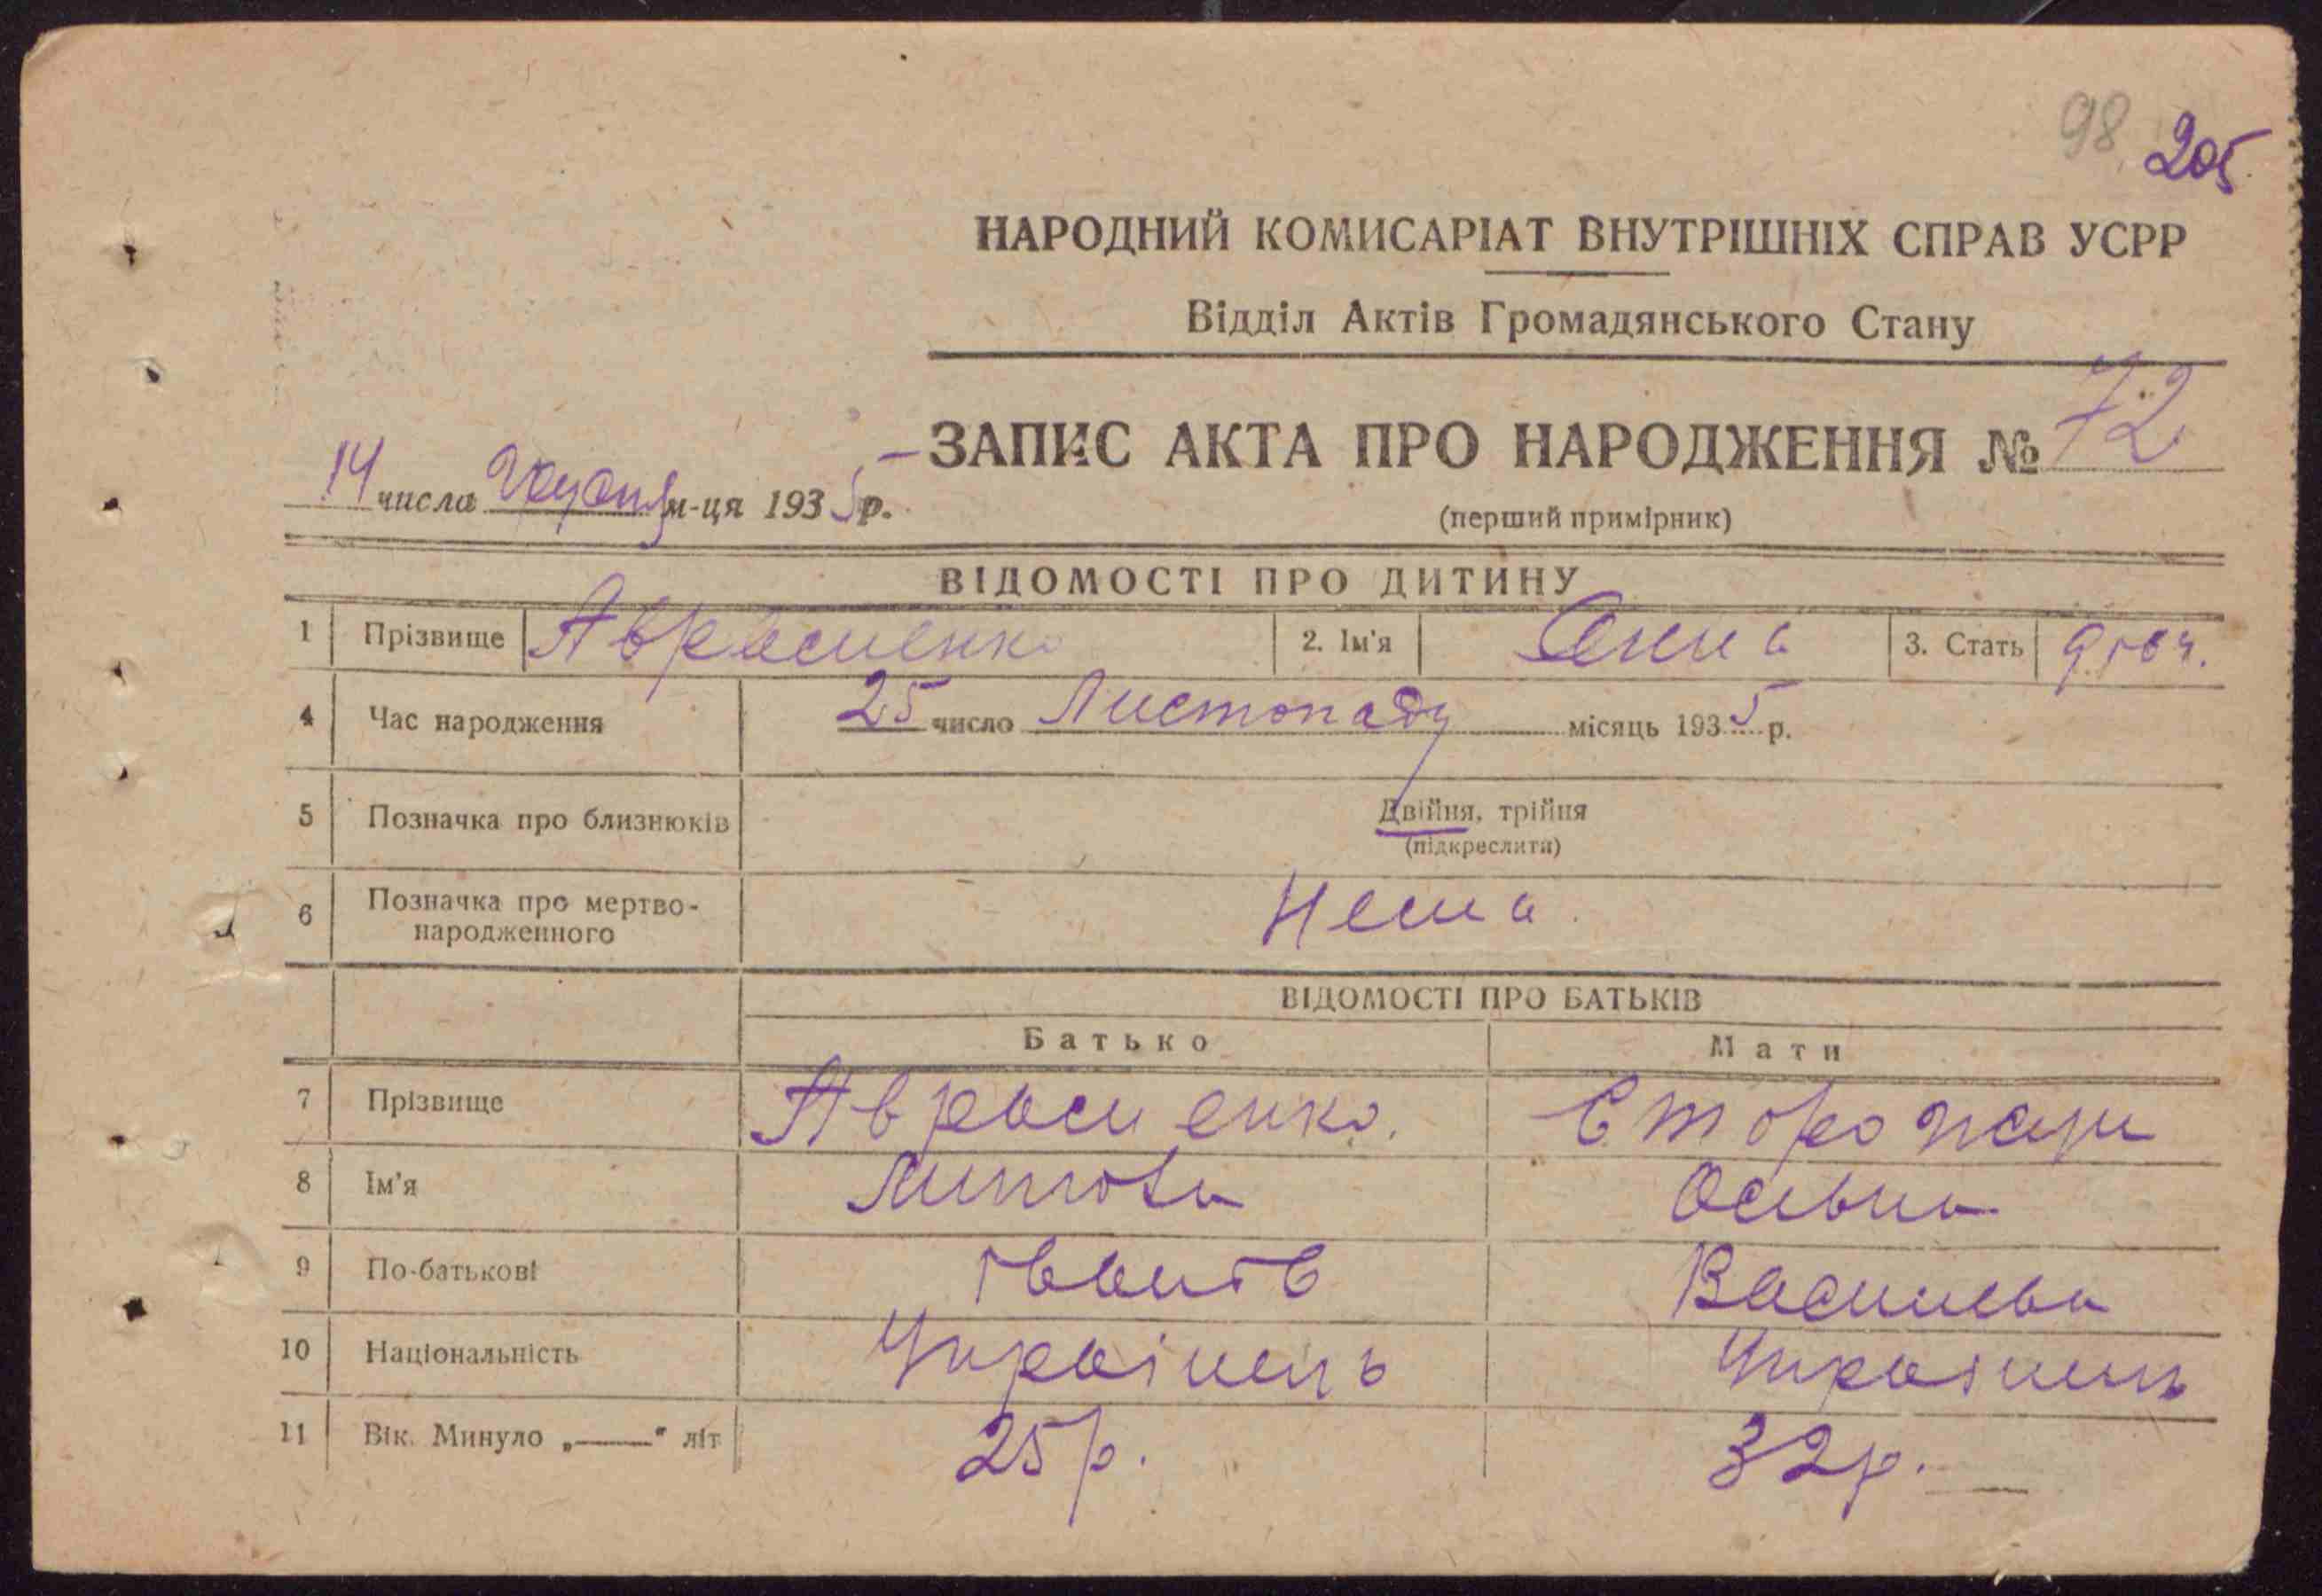 98 205
НАРОДНИЙ КОМИСАРІАТ ВНУТРІШНІХ СПРАВ УСРР
Відділ Актів Громадянського Стану
ЗАПИС АКТА ПРО НАРОДЖЕННЯ № 72
14 числа Грудня м-ця 1935 р.
(перший примірник)
ВІДОМОСТІ ПРО ДИТИНУ
1 Прізвище Авраменко 2. Ім'я Анна 3. Стать дівч.
4 Час народження 25 число Листопаду місяць 1935 р.
5 Позначка про близнюків Двійня, трійня
(підкреслити)
6 Позначка про мертво-
народженного Нема
ВІДОМОСТІ ПРО БАТЬКІВ
Батько Мати
7 Прізвище Авраменко.
8 Ім'я
9 По-батькові Іванів Васильвн
10 Національність Українець Українець
11 Вік. Минуло „——" літ 25 р. 32 р.